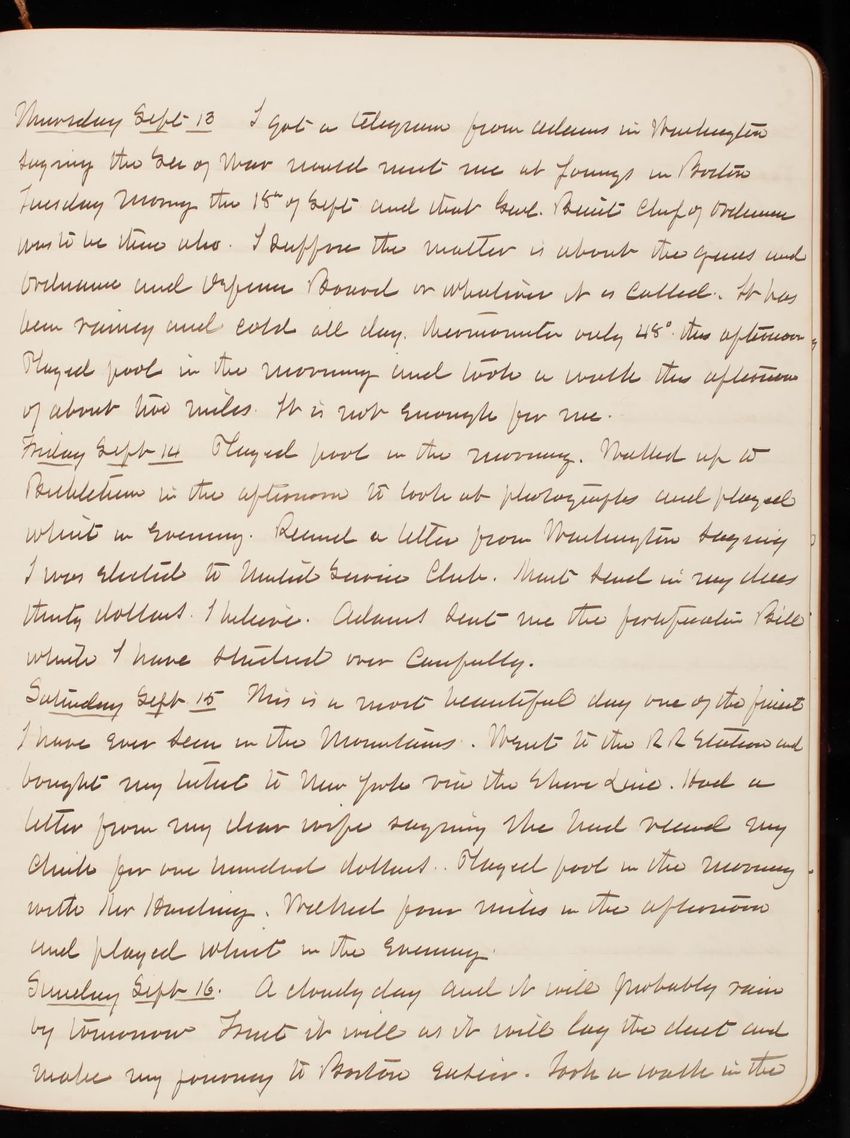 Thursday Sept 13 I got a telegram from Adams in Washington
saying the Sec of War would meet me at Youngs in Boston
Tuesday Morng the 18th of Sept and that Genl. Benét Chf of Ordnance
was to be there also. I suppose the matter is about the guns and
Ordnance and Defense Board or whatever it is called. It has
been rainy and cold all day. thermometer only 48° this afternoon
Played pool in the morning and took a walk this afternoon
of about two miles. It is not enough for me.
Friday Sept 14 Played pool in the morning. Walked up to
Bethlehem in the afternoon to look at photographs and played
whist in evening. Recevd a letter from Washington saying
I was elected to United Service Club. Must send in my dues
thirty dollars. I believe. Adams sent me the fortification Bill
which I have studied over carefully.
Saturday Sept 15 This is a most beautiful day one of the finest
I have ever seen in the Mountains. Went to the RR Station and
bought my ticket to New York via the Shore Line. Had a
letter from my dear wife saying she had recevd my
check for one hundred dollars. Played pool in the morning
with Mr Harding. Walked four miles in the afternoon
and played whist in the evening.
Sunday Sept 16. A cloudy day and it will probably rain
by tomorrow Trust it will as it will lay the dust and
make my journey to Boston easier. Took a walk in the